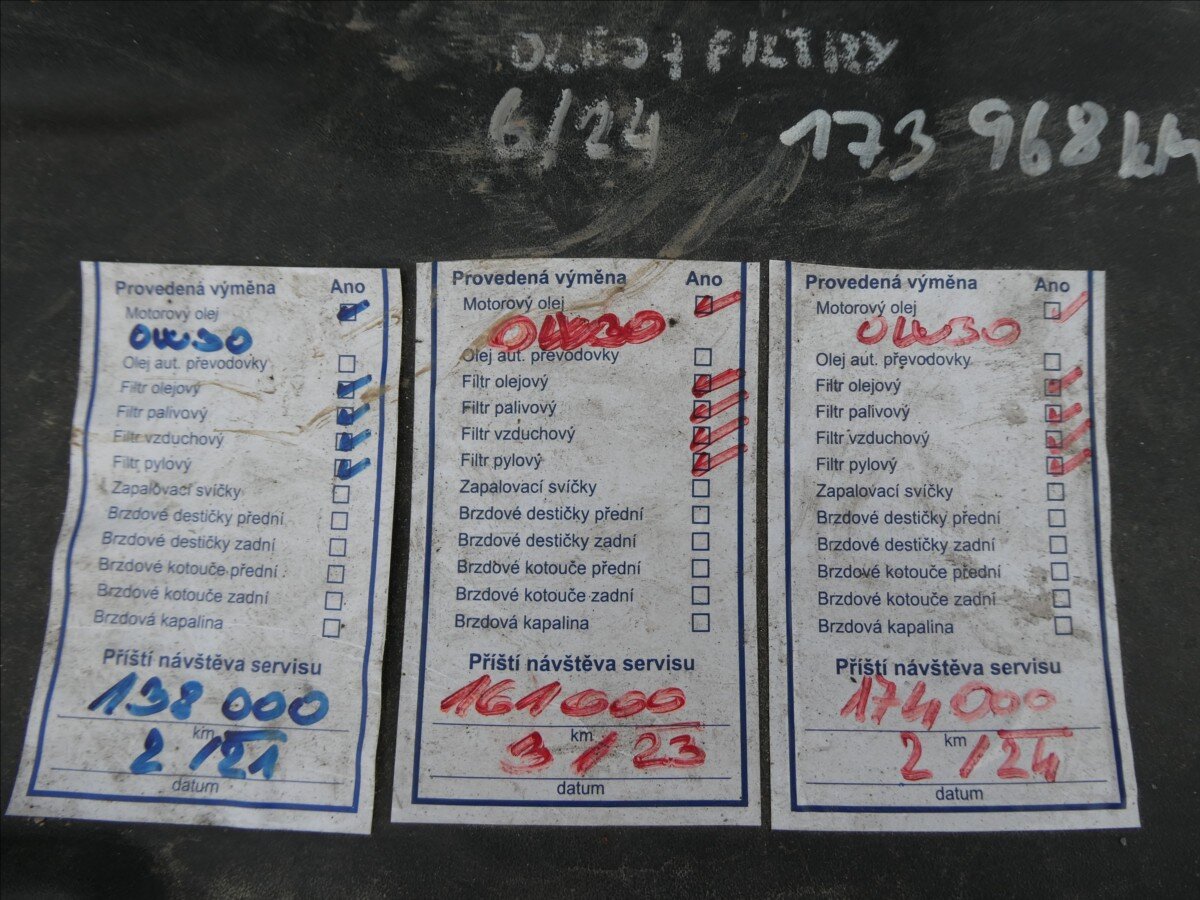 OLEJ + FILTRY
6/24 173 968 km
Provedená výměna Ano
Motorový olej
0W30
Olej aut. převodovky
Filtr olejový
Filtr palivový
Filtr vzduchový
Filtr pylový
Zapalovací svíčky
Brzdové destičky přední
Brzdové destičky zadní
Brzdové kotouče přední
Brzdové kotouče zadní
Brzdová kapalina
Příští návštěva servisu
138 000
km
2/21
datum
Provedená výměna Ano
Motorový olej
0W30
Olej aut. převodovky
Filtr olejový
Filtr palivový
Filtr vzduchový
Filtr pylový
Zapalovací svíčky
Brzdové destičky přední
Brzdové destičky zadní
Brzdové kotouče přední
Brzdové kotouče zadní
Brzdová kapalina
Příští návštěva servisu
161 000
km
3/23
datum
Provedená výměna Ano
Motorový olej
0W30
Olej aut. převodovky
Filtr olejový
Filtr palivový
Filtr vzduchový
Filtr pylový
Zapalovací svíčky
Brzdové destičky přední
Brzdové destičky zadní
Brzdové kotouče přední
Brzdové kotouče zadní
Brzdová kapalina
Příští návštěva servisu
174 000
km
2/24
datum